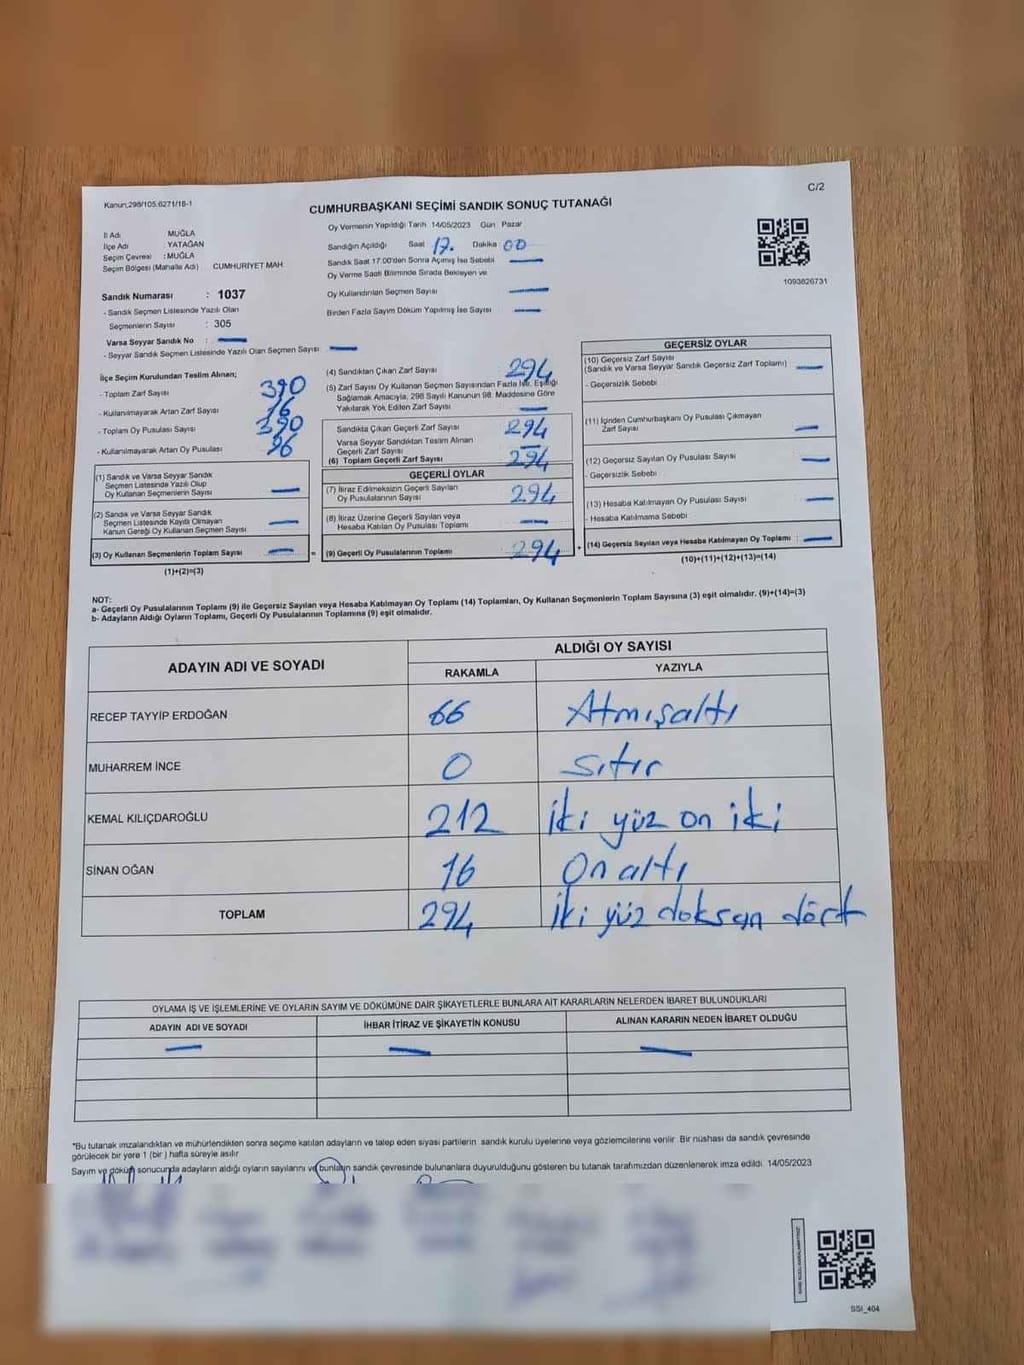 C/2
Kanun;298/105.6271/18-1
CUMHURBAŞKANI SEÇİMİ SANDIK SONUÇ TUTANAĞI
Oy Vermenin Yapıldığı Tarih 14/05/2023 Gün Pazar
İl Adı MUĞLA
İlçe Adı : YATAĞAN
Seçim Çevresi : MUĞLA
Seçim Bölgesi (Mahalle Adı) CUMHURİYET MAH
Sandığın Açıldığı Saat 17. Dakika : 00
Sandık Saat 17:00'den Sonra Açımış İse Sebebi
Oy Verme Saati Bitiminde Sırada Bekleyen ve
Oy Kullandırılan Seçmen Sayısı
Birden Fazla Sayım Döküm Yapılmış İse Sayısı
1093826731
Sandık Numarası : 1037
- Sandık Seçmen Listesinde Yazılı Olan
Seçmenlerin Sayısı : 305
Varsa Seyyar Sandık No :
- Seyyar Sandık Seçmen Listesinde Yazılı Olan Seçmen Sayısı
İlçe Seçim Kurulundan Teslim Alınan;
- Toplam Zarf Sayısı 390
- Kullanılmayarak Artan Zarf Sayısı
- Toplam Oy Pusulası Sayısı 390
- Kullanılmayarak Artan Oy Pusulası 96
(1) Sandık ve Varsa Seyyar Sandık
Seçmen Listesinde Yazılı Olup
Oy Kullanan Seçmenlerin Sayısı
(2) Sandık ve Varsa Seyyar Sandık
Seçmen Listesinde Kayıtlı Olmayan
Kanun Gereği Oy Kullanan Seçmen Sayısı
(3) Oy Kullanan Seçmenlerin Toplam Sayısı
(1)+(2)=(3)
(4) Sandıktan Çıkan Zarf Sayısı 294
(5) Zarf Sayısı Oy Kullanan Seçmen Sayısından Fazla İse, Eşitliği
Sağlamak Amacıyla, 298 Sayılı Kanunun 98. Maddesine Göre
Yakılarak Yok Edilen Zarf Sayısı
Sandıkta Çıkan Geçerli Zarf Sayısı 294
Varsa Seyyar Sandıktan Teslim Alınan
Geçerli Zarf Sayısı
(6) Toplam Geçerli Zarf Sayısı 294
GEÇERLİ OYLAR
(7) İtiraz Edilmeksizin Geçerli Sayılan
Oy Pusulalarının Sayısı 294
(8) İtiraz Üzerine Geçerli Sayılan veya
Hesaba Katılan Oy Pusulası Toplamı
= (9) Geçerli Oy Pusulalarının Toplamı 294
GEÇERSİZ OYLAR
(10) Geçersiz Zarf Sayısı
(Sandık ve Varsa Seyyar Sandık Geçersiz Zarf Toplamı)
- Geçersizlik Sebebi
(11) İçinden Cumhurbaşkanı Oy Pusulası Çıkmayan
Zarf Sayısı
(12) Geçersiz Sayılan Oy Pusulası Sayısı
- Geçersizlik Sebebi
(13) Hesaba Katılmayan Oy Pusulası Sayısı
- Hesaba Katılmama Sebebi
+ (14) Geçersiz Sayılan veya Hesaba Katılmayan Oy Toplamı :
(10)+(11)+(12)+(13)=(14)
NOT:
a- Geçerli Oy Pusulalarının Toplamı (9) ile Geçersiz Sayılan veya Hesaba Katılmayan Oy Toplamı (14) Toplamları, Oy Kullanan Seçmenlerin Toplam Sayısına (3) eşit olmalıdır. (9)+(14)=(3)
b- Adayların Aldığı Oyların Toplamı, Geçerli Oy Pusulalarının Toplamına (9) eşit olmalıdır.
ADAYIN ADI VE SOYADI ALDIĞI OY SAYISI
RAKAMLA YAZIYLA
RECEP TAYYİP ERDOĞAN 66 Atmışaltı
MUHARREM İNCE 0 Sıfır
KEMAL KILIÇDAROĞLU 212 İki yüz on iki
SİNAN OĞAN 16 On altı
TOPLAM 294 İki yüz doksan dört
OYLAMA İŞ VE İŞLEMLERİNE VE OYLARIN SAYIM VE DÖKÜMÜNE DAİR ŞİKAYETLERLE BUNLARA AİT KARARLARIN NELERDEN İBARET BULUNDUKLARI
ADAYIN ADI VE SOYADI İHBAR İTİRAZ VE ŞİKAYETİN KONUSU ALINAN KARARIN NEDEN İBARET OLDUĞU
*Bu tutanak imzalandıktan ve mühürlendikten sonra seçime katılan adayların ve talep eden siyasi partilerin sandık kurulu üyelerine veya gözlemcilerine verilir Bir nüshası da sandık çevresinde
görülecek bir yere 1 (bir) hafta süreyle asılır
Sayım ve döküm sonucunda adayların aldığı oyların sayılarını ve bunların sandık çevresinde bulunanlara duyurulduğunu gösteren bu tutanak tarafımızdan düzenlenerek imza edildi 14/05/2023
SSI_404